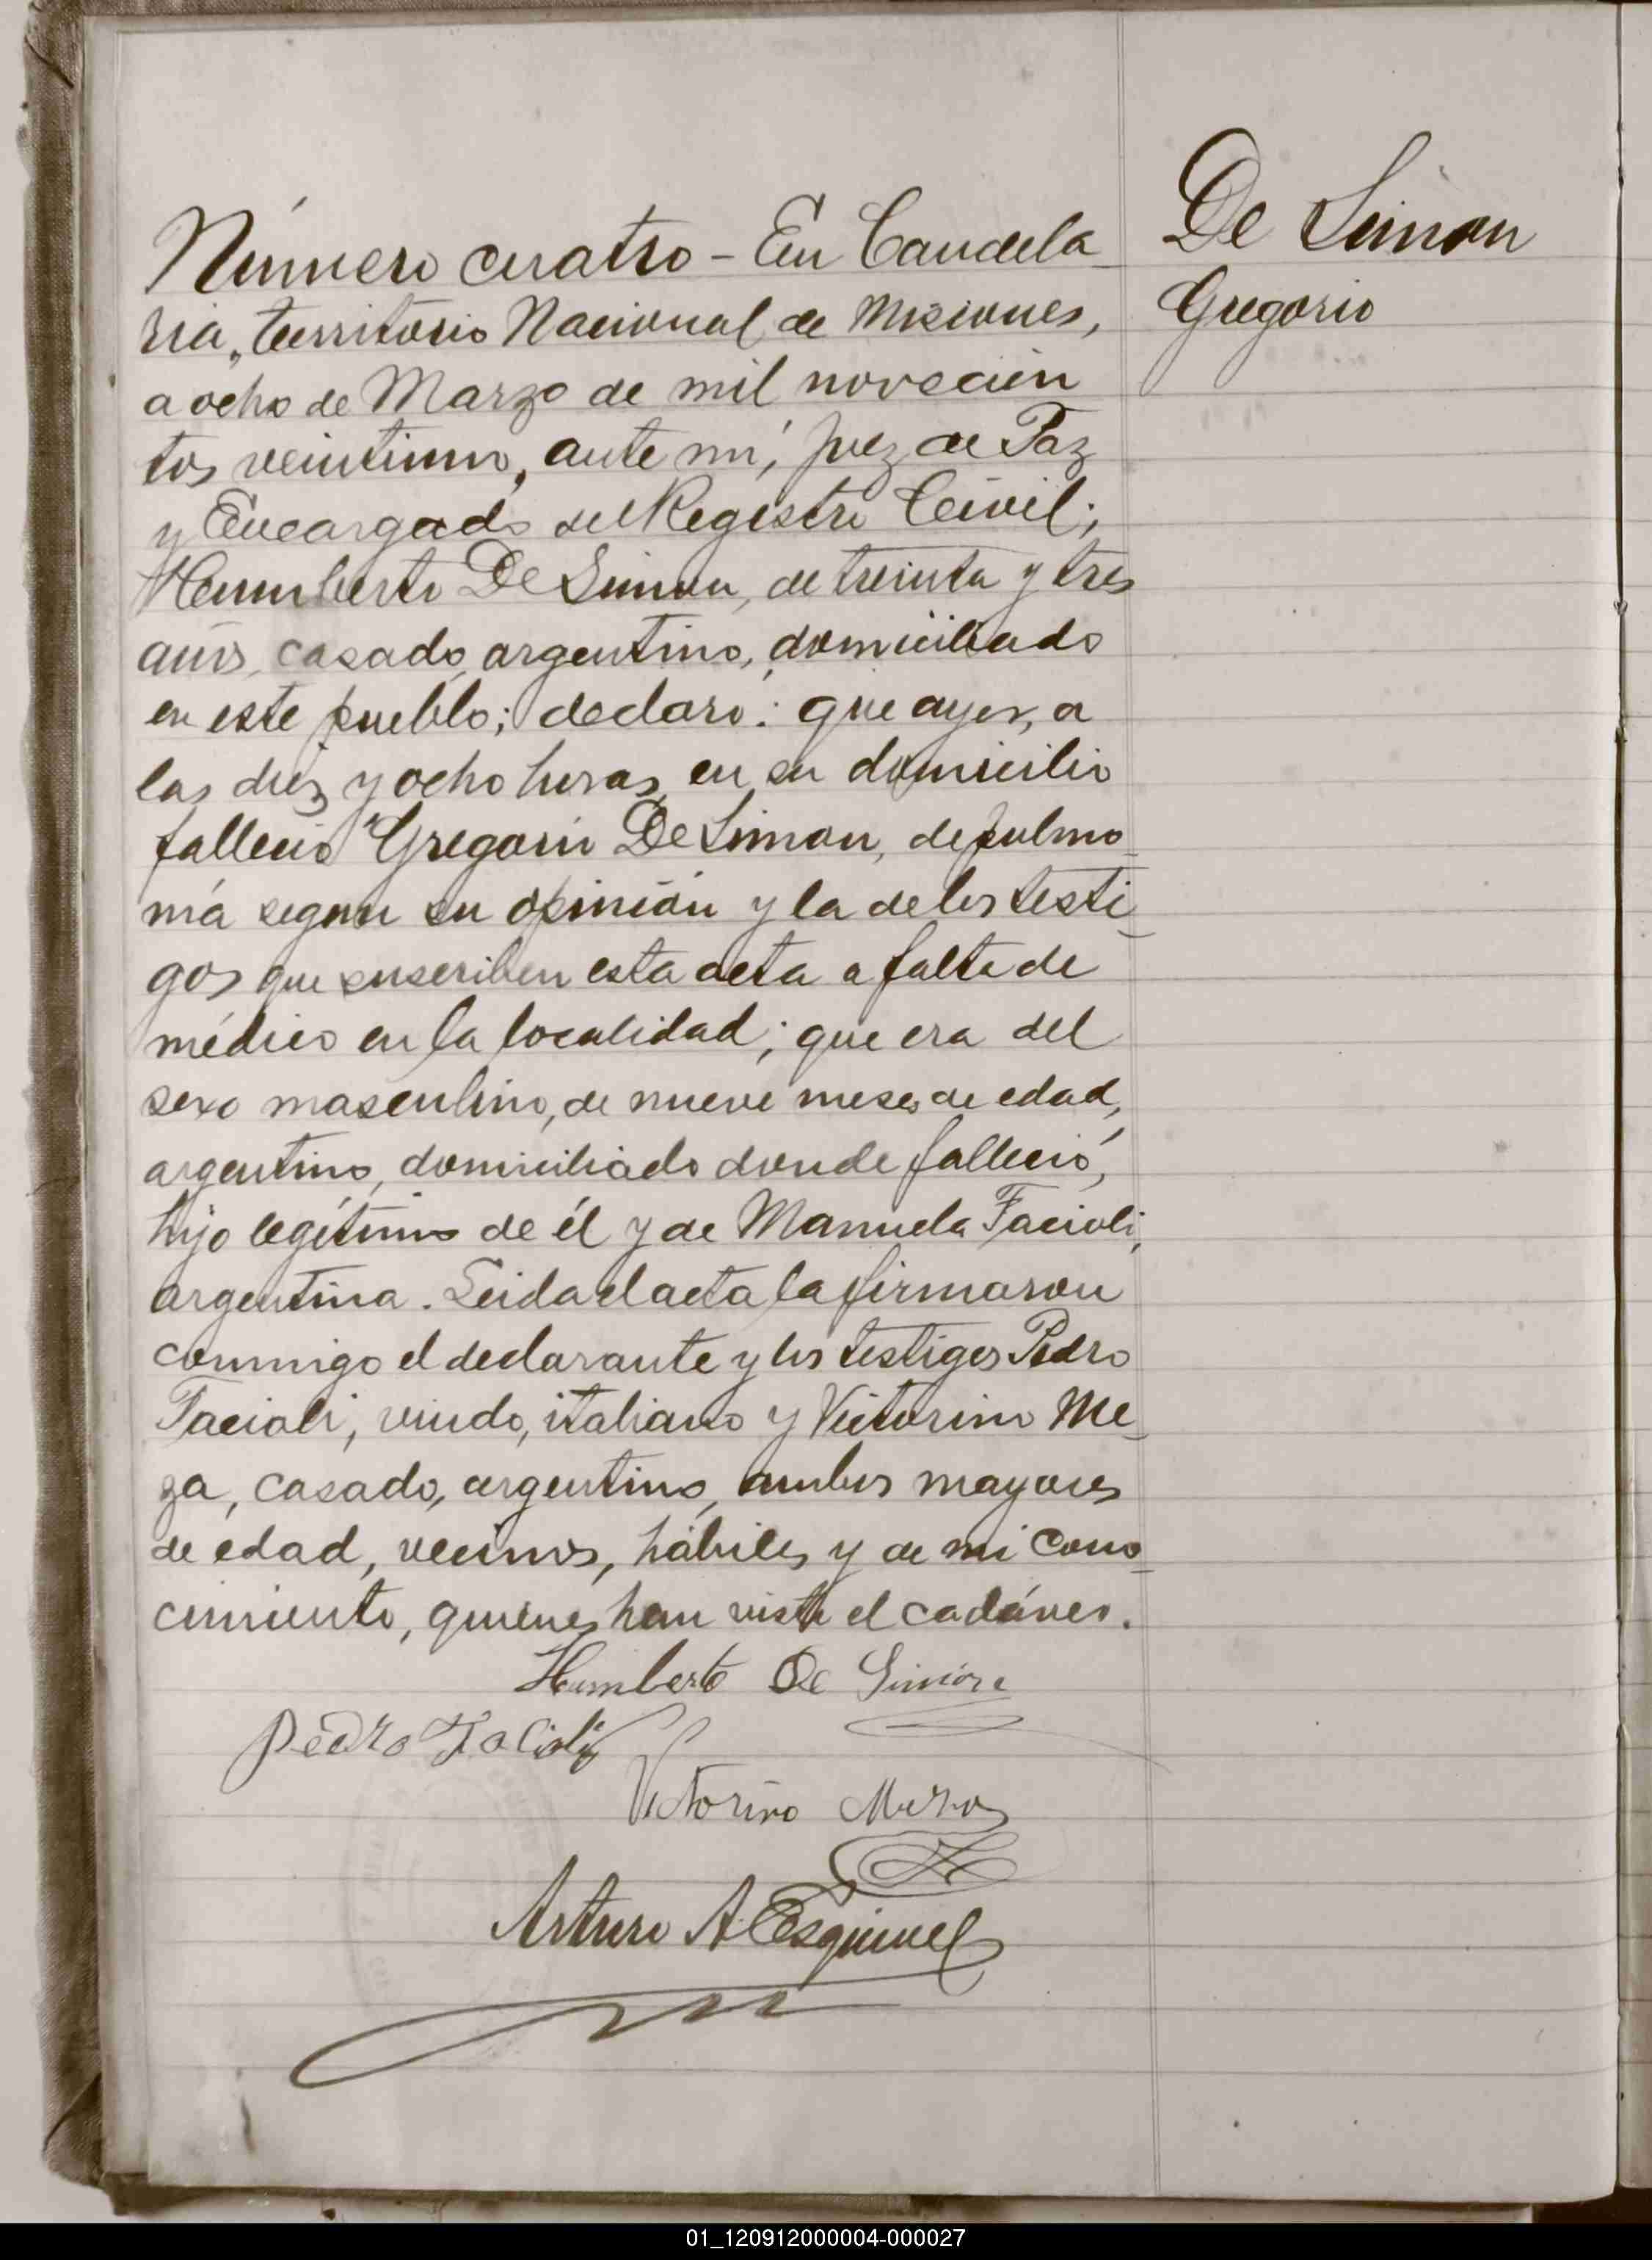 De Simon
Gregorio
Número cuatro - En Candela
ria, territorio Nacional de Misiones,
a ocho de Marzo de mil novecien
tos veintiuno, ante mí, Juez de Paz
y Encargado del Registro Civil;
Humberto De Simon, de treinta y tres
años, casado, argentino, domiciliado
en este pueblo; declaró: que ayer, a
las diez y ocho horas, en su domicilio
falleció Gregorio De Simon, de pulmo
nía segun su opinión y la de los testi-
gos que suscriben esta acta a falta de
médico en la localidad; que era del
sexo masculino, de nueve meses de edad,
argentino, domiciliado donde falleció,
hijo legítimo de él y de Manuela Facioli,
argentina. Leida el acta la firmaron
conmigo el declarante y los testigos Pedro
Facioli, viudo, italiano y Victorino Me-
za, casado, argentino, ambos mayores
de edad, vecinos, hábiles y de mi cono-
cimiento, quienes han visto el cadáver.
Humberto De Simon
Pedro Facioli
Victorino Meza
Arturo A. Esquivel
01_120912000004-000027